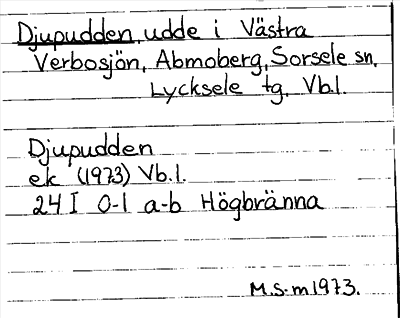 Djupudden, udde i Västra
Verbosjön, Abmoberg, Sorsele sn,
Lycksele tg. Vb.l.
Djupudden
ek (1973) Vb.l.
24 I 0-1 a-b Högbränna
M.S-m 1973.